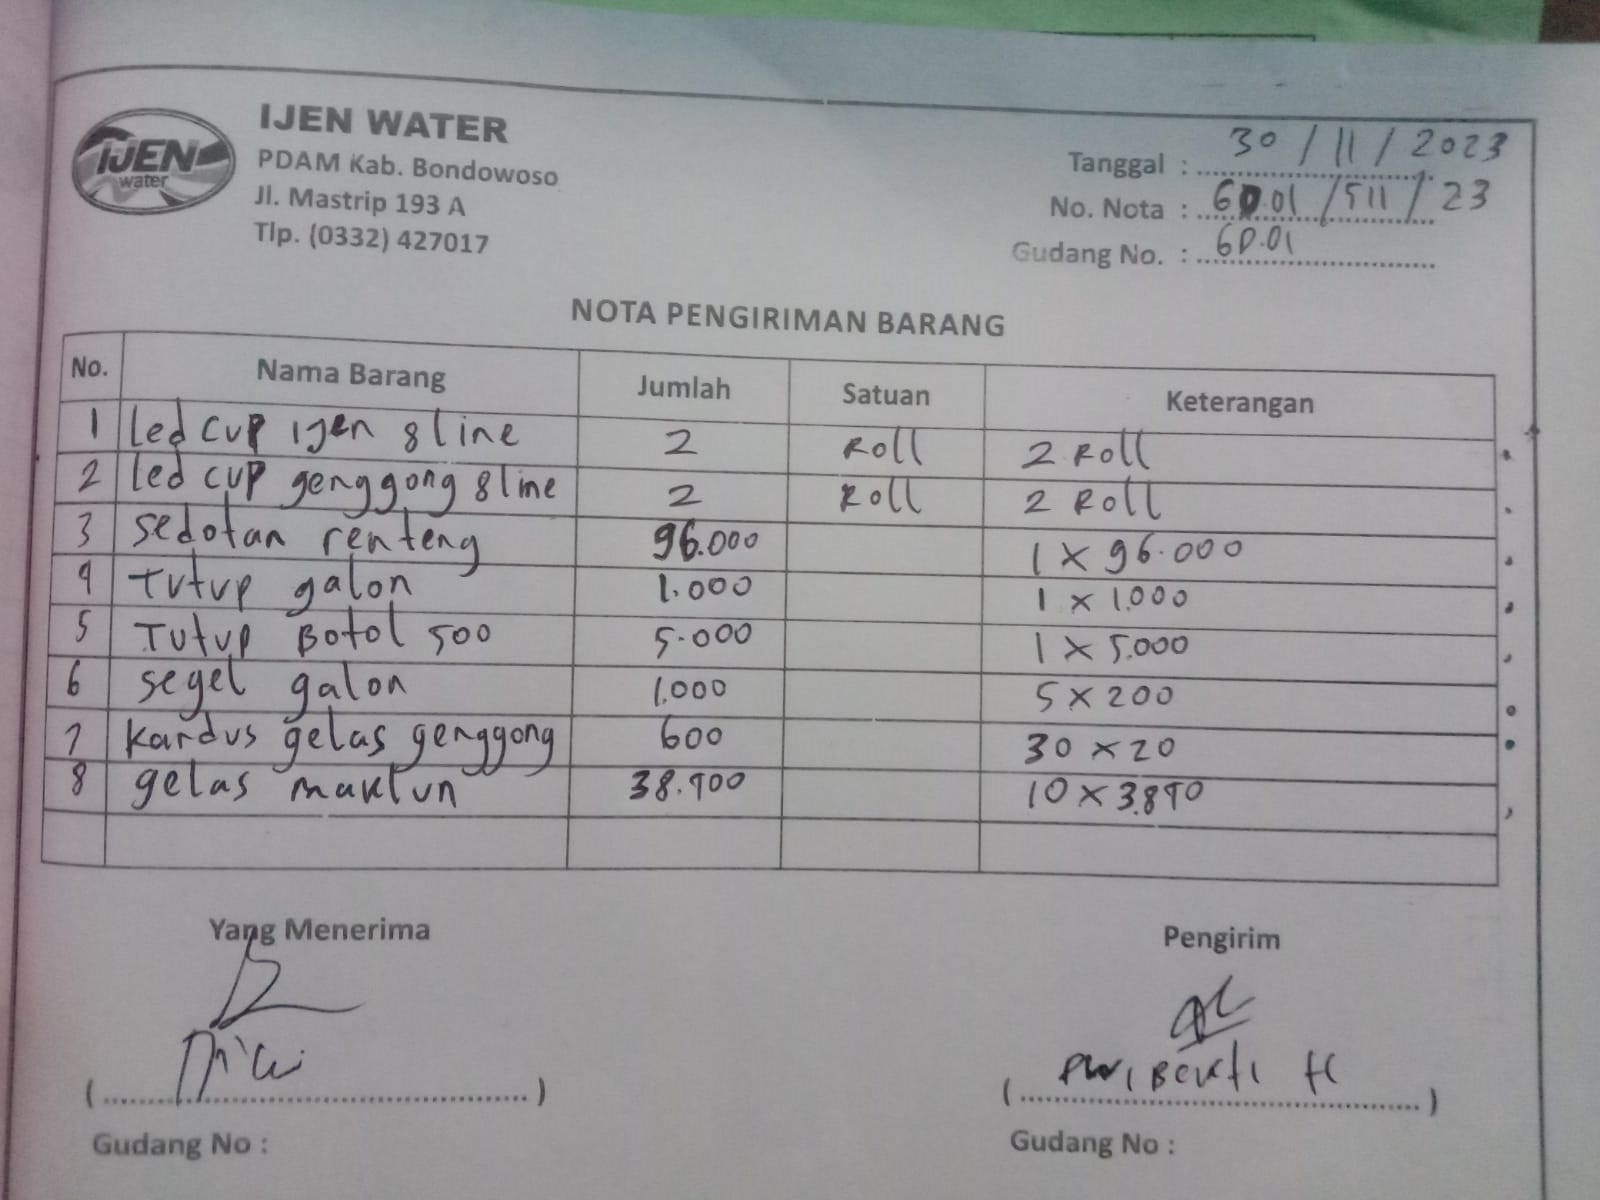 IJEN water
IJEN WATER
PDAM Kab. Bondowoso
Jl. Mastrip 193 A
Tlp. (0332) 427017
Tanggal : 30 / 11 / 2023
No. Nota : GD.01 / 511 / 23
Gudang No. : GD.01
NOTA PENGIRIMAN BARANG
No. Nama Barang Jumlah Satuan Keterangan
1 led cup ijen 8 line 2 Roll 2 Roll
2 led cup genggong 8 line 2 Roll 2 Roll
3 sedotan renteng 96.000 1 x 96.000
4 Tutup galon 1.000 1 x 1.000
5 Tutup Botol 500 5.000 1 x 5.000
6 segel galon 1.000 5 x 200
7 kardus gelas genggong 600 30 x 20
8 gelas maklun 38.900 10 x 3.890
Yang Menerima Pengirim
Gudang No : Gudang No :